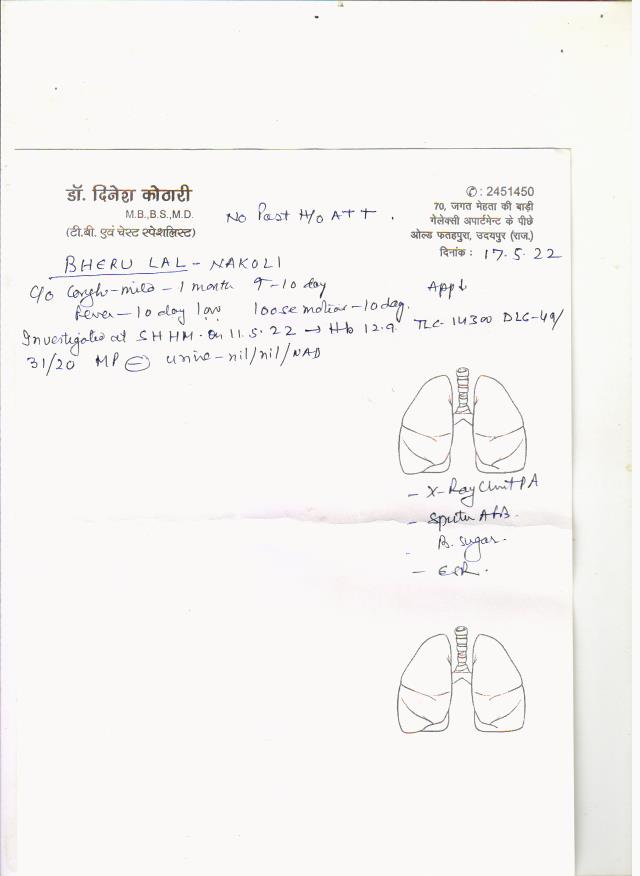 डॉ. दिनेश कोठारी
M.B.,B.S.,M.D.
(टी.बी. एवं चेस्ट स्पेशलिस्ट)
No Past H/o ATT.
✆ : 2451450
70, जगत मेहता की बाड़ी
गेलेक्सी अपार्टमेन्ट के पीछे
ओल्ड फतहपुरा, उदयपुर (राज.)
दिनांक : 17.5.22
BHERU LAL - NAKOLI
C/o Cough - mild - 1 month ↑ - 10 day
Fever - 10 day low loose motion - 10 day.
App↓
Investigated at SHHM. on 11.5.22 → Hb 12.9 TLC - 14300 DLC - 49/
31/20 MP ⊖ urine - nil/nil/NAD
- X-Ray Chest PA
- Sputum AFB
B. Sugar.
- ESR.